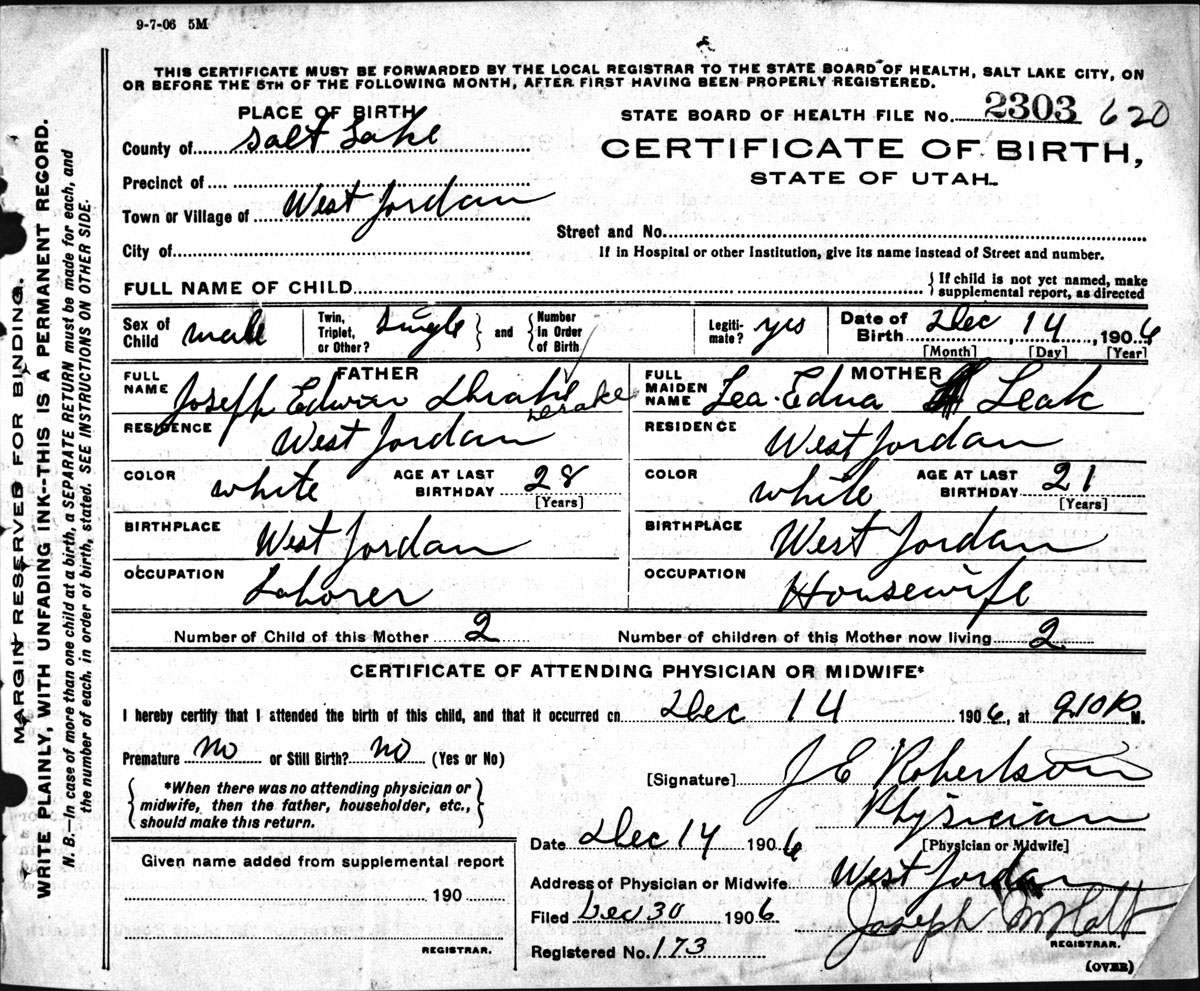 9-7-06 5M
THIS CERTIFICATE MUST BE FORWARDED BY THE LOCAL REGISTRAR TO THE STATE BOARD OF HEALTH, SALT LAKE CITY, ON
OR BEFORE THE 5TH OF THE FOLLOWING MONTH, AFTER FIRST HAVING BEEN PROPERLY REGISTERED.
MARGIN RESERVED FOR BINDING.
WRITE PLAINLY, WITH UNFADING INK--THIS IS A PERMANENT RECORD.
N. B.—In case of more than one child at a birth, a SEPARATE RETURN must be made for each, and
the number of each, in order of birth, stated. SEE INSTRUCTIONS ON OTHER SIDE.
PLACE OF BIRTH
County of Salt Lake
Precinct of
Town or Village of West Jordan
City of
STATE BOARD OF HEALTH FILE No. 2303 620
CERTIFICATE OF BIRTH,
STATE OF UTAH.
Street and No.
If in Hospital or other Institution, give its name instead of Street and number.
FULL NAME OF CHILD
If child is not yet named, make
supplemental report, as directed
Sex of Child male
Twin, Triplet, or Other? Single
and
Number in Order of Birth
Legiti-mate? yes
Date of Birth Dec 14, 1906
[Month] [Day] [Year]
FATHER
FULL NAME Joseph Edwin Dhrake
Drake
RESIDENCE West Jordan
COLOR white AGE AT LAST BIRTHDAY 28
[Years]
BIRTHPLACE West Jordan
OCCUPATION Laborer
MOTHER
FULL MAIDEN NAME Lea Edna Leak
RESIDENCE West Jordan
COLOR white AGE AT LAST BIRTHDAY 21
[Years]
BIRTHPLACE West Jordan
OCCUPATION Housewife
Number of Child of this Mother 2 Number of children of this Mother now living 2
CERTIFICATE OF ATTENDING PHYSICIAN OR MIDWIFE*
I hereby certify that I attended the birth of this child, and that it occurred on Dec 14 1906, at 9.10 P M.
Premature no or Still Birth? no (Yes or No)
*When there was no attending physician or
midwife, then the father, householder, etc.,
should make this return.
[Signature] J E Robertson
Physician
[Physician or Midwife]
Date Dec 14 1906
Address of Physician or Midwife West Jordan
Filed Dec 30 1906 Joseph M Holt
REGISTRAR.
Registered No. 173
(OVER)
Given name added from supplemental report
190
REGISTRAR.